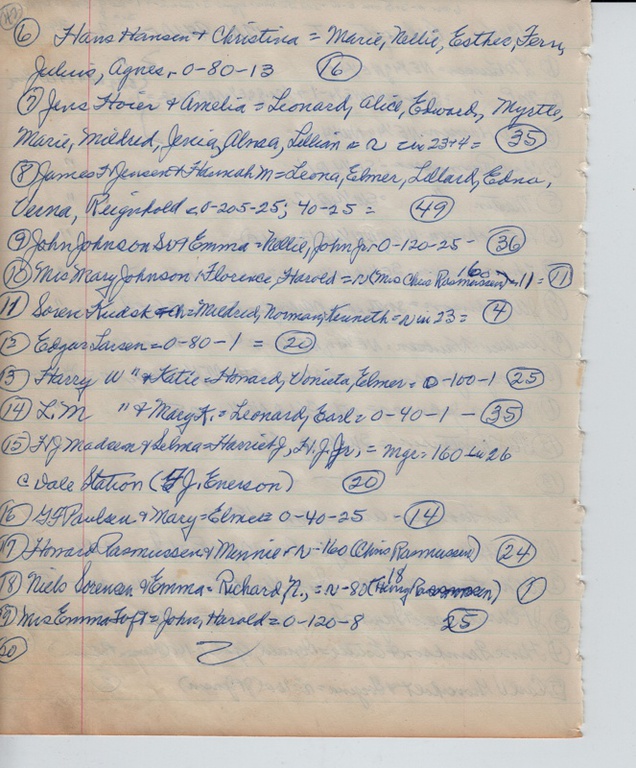 (6) Hans Hansen + Christina = Marie, Nellie, Esther, Fern,
Julius, Agnes, - 0-80-13 (16)
(7) Jens Hoier + Amelia = Leonard, Alice, Edward, Myrtle,
Marie, Mildred, Jenia, Almea, Lillian = r in 23+4 = (35)
(8) James J Jensen + Hannah M = Leona, Elmer, Lillard, Edna,
Verna, Reignhold = 0-205-25; 40-25 = (49)
(9) John Johnson Sr + Emma = Nellie, John jr = 0-120-25 - (36)
(10) Mrs Mary Johnson + Florence, Harold = r (Mrs Chris Rasmussen) 160 - 11 = (11)
(11) Soren = Mildred, Norman, Kenneth = r in 23 = (4)
(12) Edgar Larsen = 0-80-1 = (20)
(13) Harry W " + Katie = Howard, Vonieta, Elmer = 0-100-1 (25)
(14) L. M " + Mary K. = Leonard, Earl = 0-40-1 - (35)
(15) H J Madsen + Selma = Harriet J, H. J. Jr., = mgr = 160 in 26
C Dale Station (J. Enerson) (20)
(16) G F Paulsen + Mary = Elmer = 0-40-25 - (14)
(17) Howard Rasmussen + Minnie = r-160 (Chris Rasmussen) (24)
(18) Niels Sorensen + Emma = Richard N., = r-80 (Henry) 18 (1)
(19) Mrs Emma Toft = John, Harold = 0-120-8 25
(20)